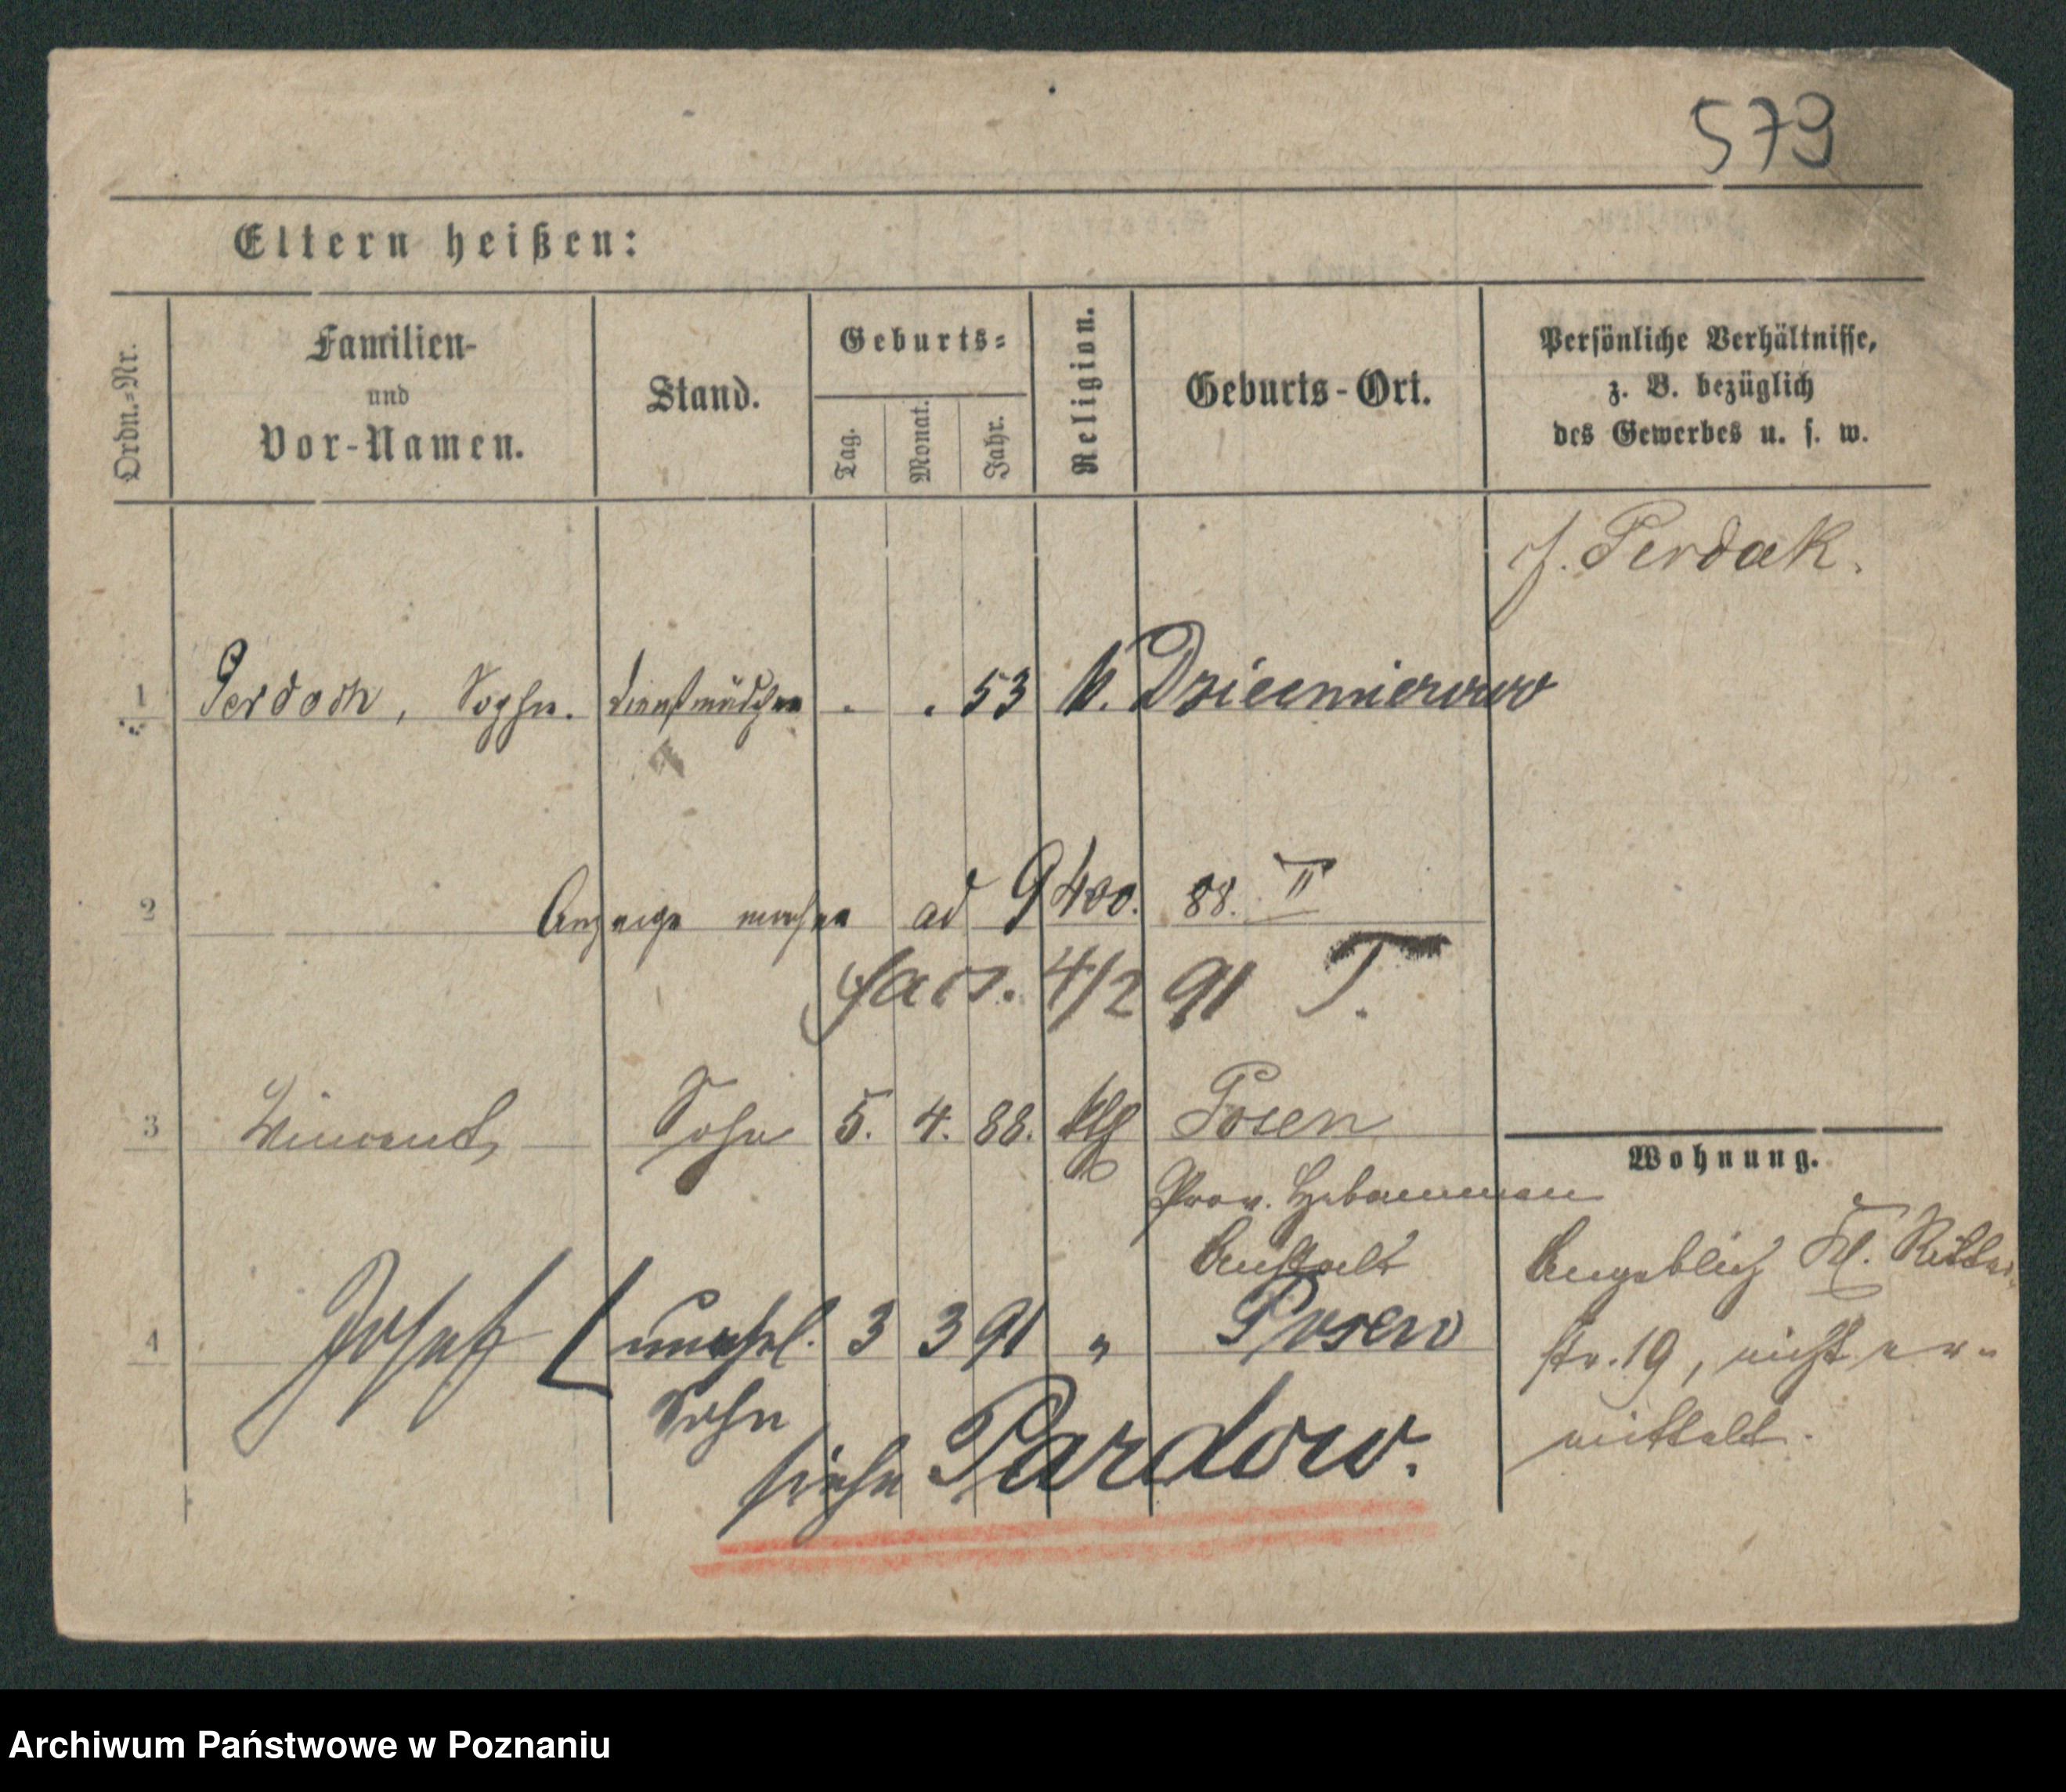 579
Eltern heißen:
Ordn.-Nr.
Familien-
und
Vor-Namen.
Stand.
Geburts-
Tag.
Monat.
Jahr.
Religion.
Geburts-Ort.
Persönliche Verhältnisse,
z. B. bezüglich
des Gewerbes u. s. w.
f. Perdak.
1 Perdoch, Sophie. Dienstmädchen . . 53 k. Dziecmierowo
2 Anzeige machen ad 9400. 88. II
4/2 91 T.
3 Vincent, Sohn 5. 4. 88. kth Posen
Prov. Hebammen
Anstalt
Wohnung.
Angeblich Kl. Ritter-
str. 19, nicht er-
mittelt.
4 Josef unehel. 3 3 91 " Posen
Sohn
siehe Pardow.
Archiwum Państwowe w Poznaniu